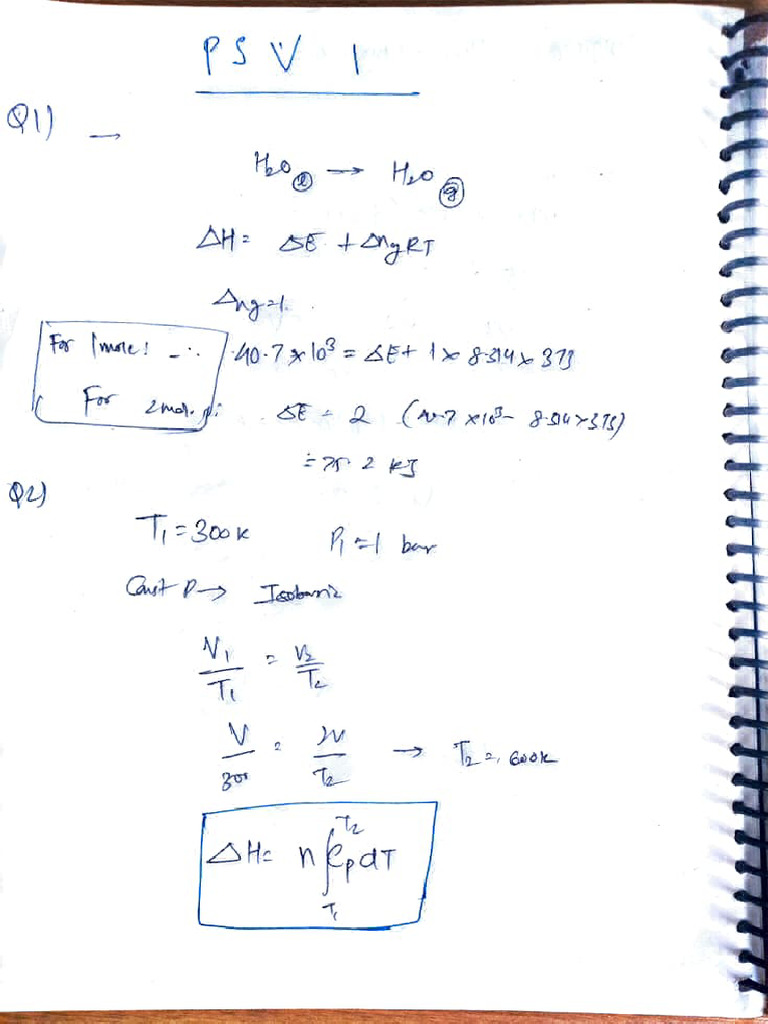 PSV 1
Q1) →
H₂O (l) → H₂O (g)
ΔH = ΔE + ΔngRT
Δng=1.
For 1mole! ∴ 40.7 × 10³ = ΔE + 1 × 8.314 × 373
For 2mol. ΔE = 2 (40.7 × 10³ - 8.314 × 373)
= 75.2 kJ
Q2)
T₁ = 300K P₁ = 1 bar
Const P → Isobaric
V₁/T₁ = V₂/T₂
V/300 = 2V/T₂ → T₂ = 600K
ΔH = n∫T₁T₂ CpdT